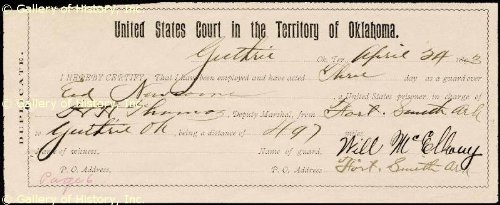 Gallery of History, Inc.
DUPLICATE.
United States Court in the Territory of Oklahoma.
Guthrie Ok. Ter. April 24
I HEREBY CERTIFY, That I have been employed and have acted Three day as a guard over
Ed Newsome a United States prisoner, in charge of
H A Thomas, Deputy Marshal, from Fort Smith Ark
to Guthrie Ok being a distance of 497 miles.
Name of witness. Name of guard. Will McElhany
P. O. Address. P. O. Address. Fort Smith Ark
Page 6